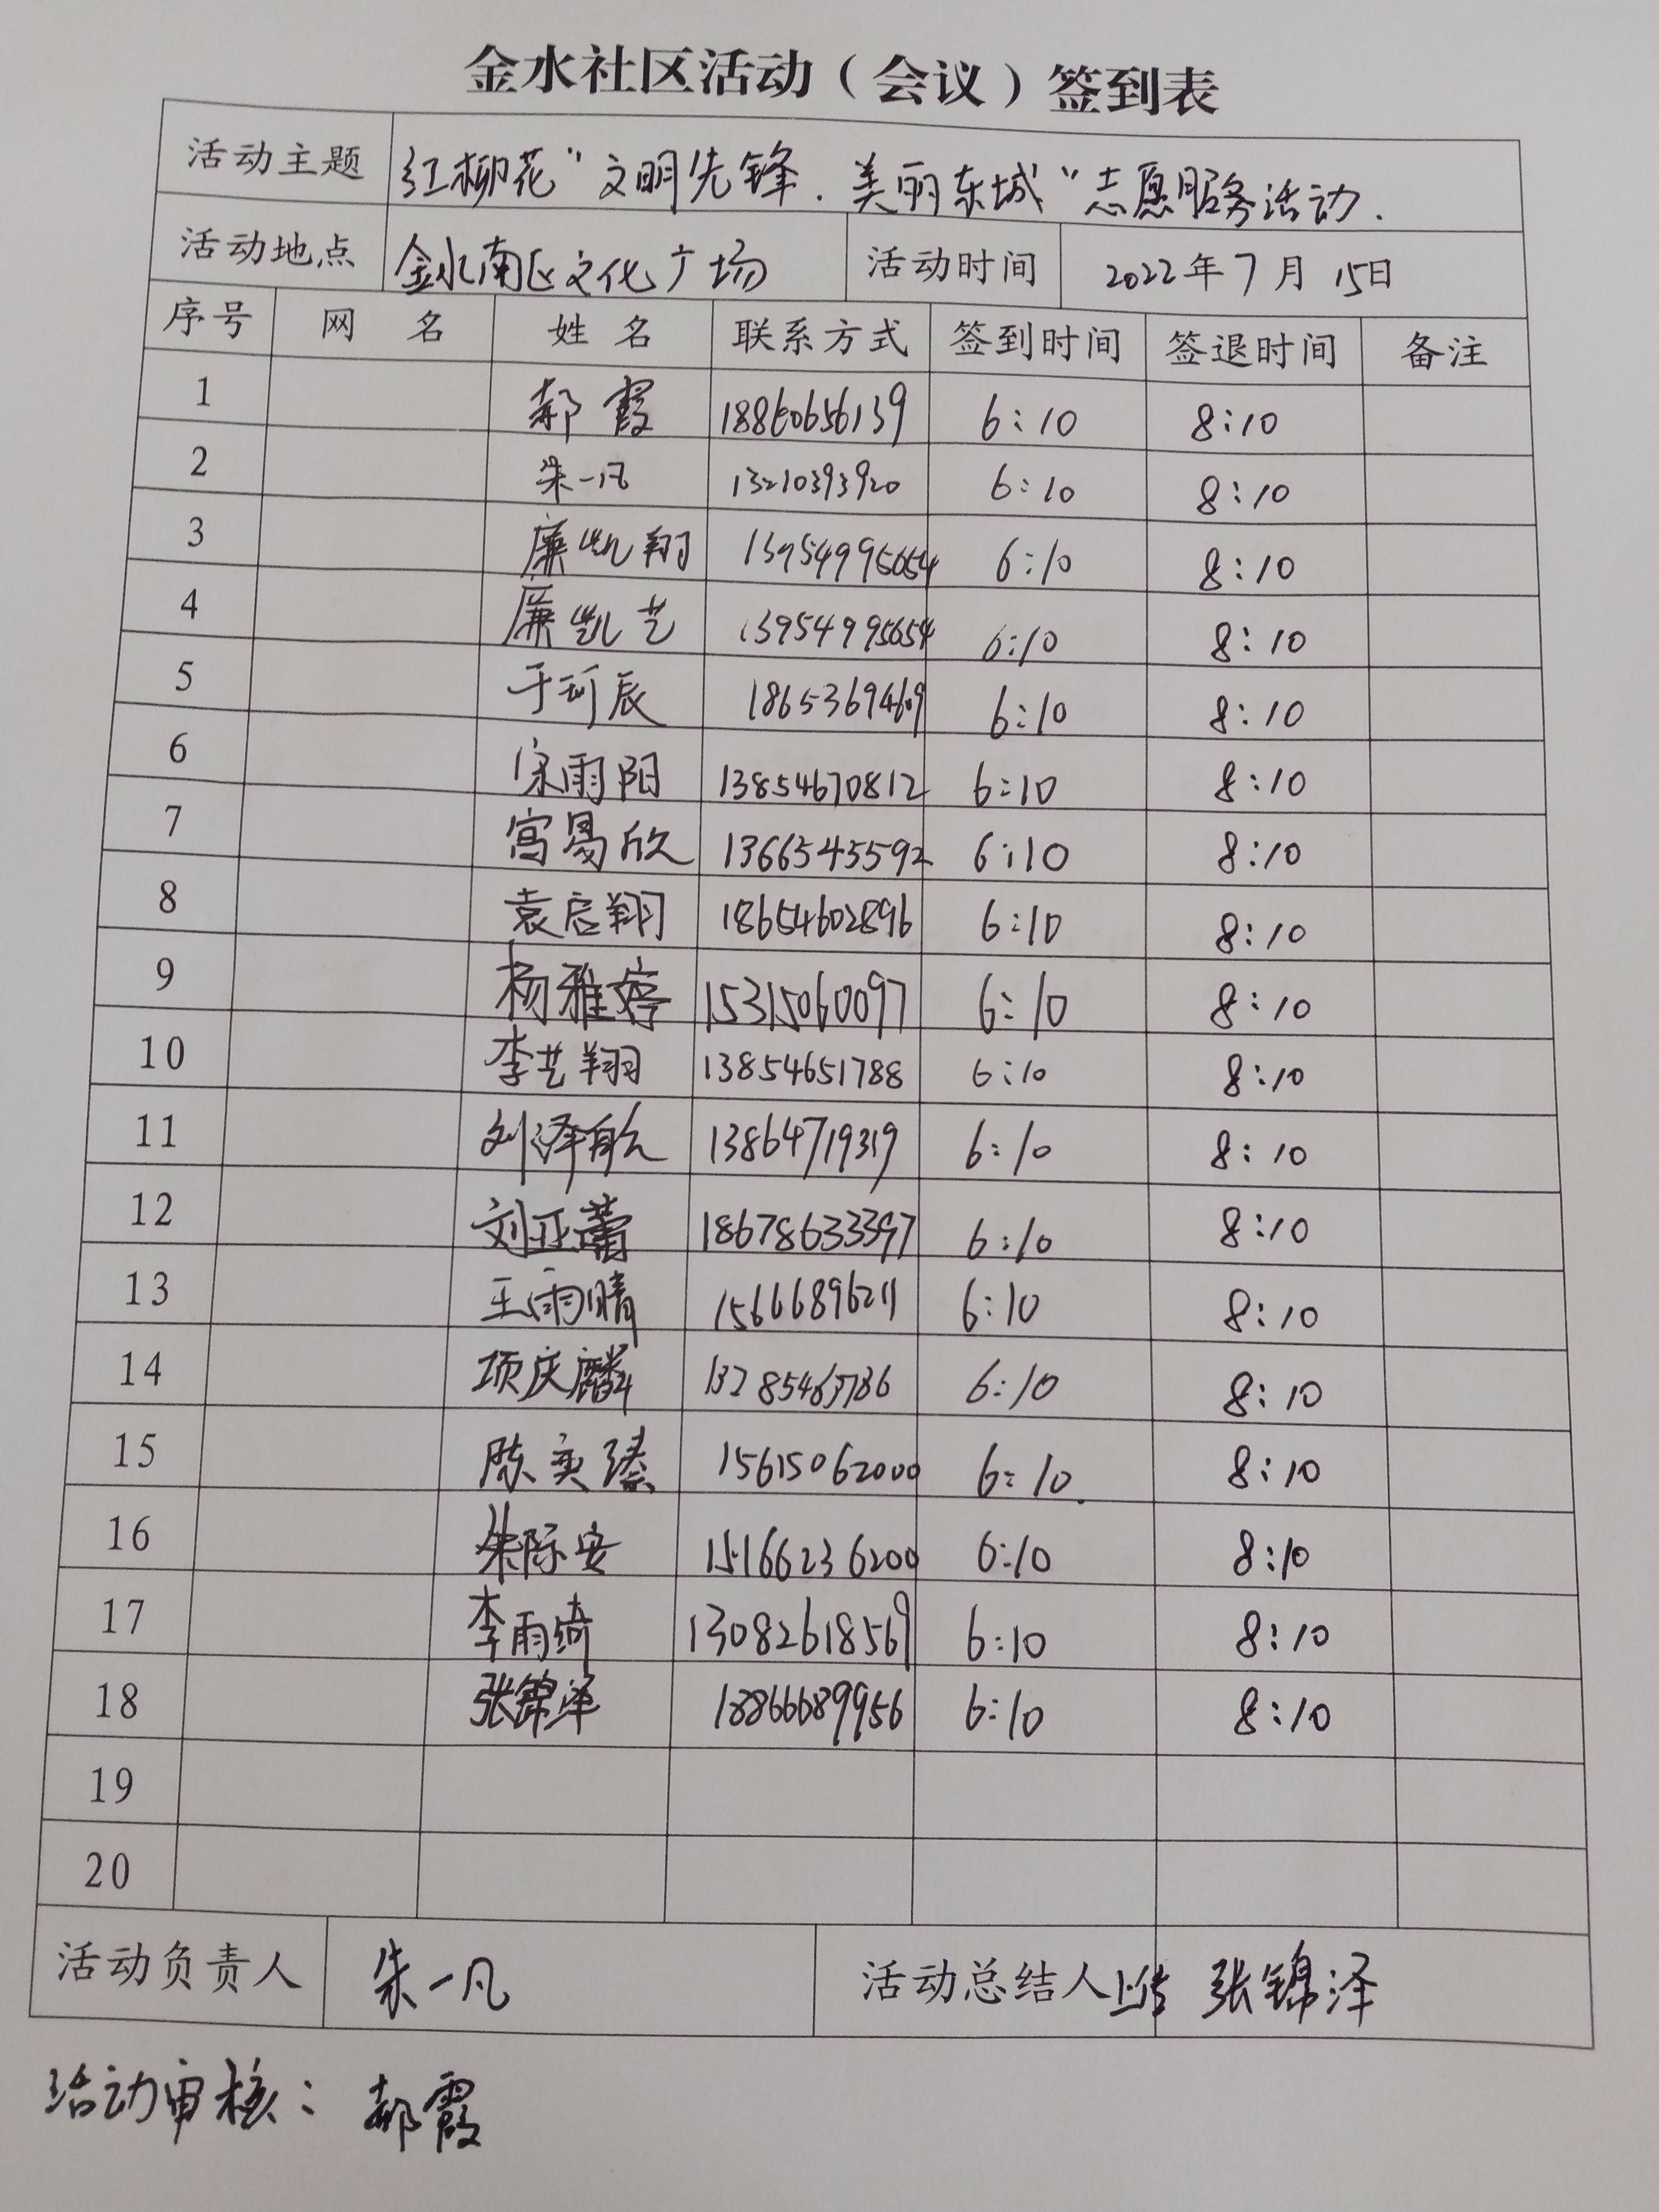 金水社区活动（会议）签到表
活动主题 红柳花“文明先锋.美丽东城”志愿服务活动.
活动地点 金水南区文化广场 活动时间 2022年7月15日
序号 网名 姓名 联系方式 签到时间 签退时间 备注
1 郝霞 18860656139 6:10 8:10
2 朱一凡 13210393920 6:10 8:10
3 廉凯翔 13954995654 6:10 8:10
4 廉凯艺 13954995654 6:10 8:10
5 于可辰 18653694609 6:10 8:10
6 宋雨阳 13854670812 6:10 8:10
7 宫易欣 13665455592 6:10 8:10
8 袁启翔 18654602896 6:10 8:10
9 杨雅婷 15315060097 6:10 8:10
10 李艺翔 13854651788 6:10 8:10
11 刘泽 13864719319 6:10 8:10
12 刘亚蕾 18678633397 6:10 8:10
13 王雨晴 15666896211 6:10 8:10
14 项庆麟 6:10 8:10
15 陈奕臻 15615062000 6:10. 8:10
16 朱际安 15166236200 6:10 8:10
17 李雨绮 13082618569 6:10 8:10
18 张锦泽 18866689956 6:10 8:10
19
20
活动负责人 朱一凡 活动总结人上传 张锦泽
活动审核：郝霞